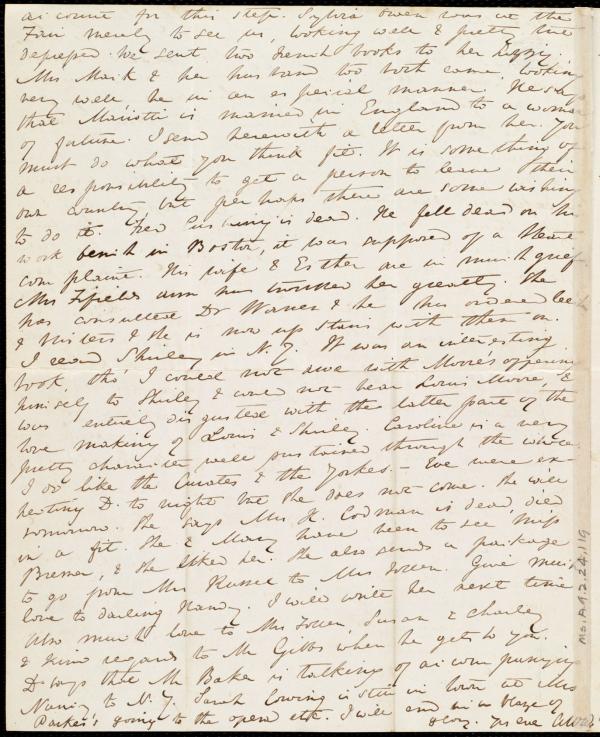 account for this step. Sylvia Owen was at the
Fair merely to see us, looking well & pretty but
depressed. We sent two French books to her Lizzy.
Mrs Mack & her husband too both came, looking
very well he in an especial manner. He says
that Mariotti is married in England to a woman
of fortune. I send herewith a letter from her. You
must do what you think fit. It is something of
a responsibility to get a person to leave their
own country but perhaps there are some washing
to do it. Cushing is dead. He fell dead on his
work bench in Boston, it was supposed of a Heart
complaint. His wife & Esther are in much grief.
Mrs Fifields arm has troubled her greatly. She
has consulted Dr Warren & he has ordered leeches
& blisters & she is now up stairs with them on.
I read Shirley in N. Y. It was an interesting
book, tho' I could not with Moore's offering
himself to Shirley & could not bear Louis Moore, &
was entirely disgusted with the latter part of the
love making of Louis & Shirley. Caroline is a very
pretty character well sustained through the whole.
I do like the Curates & the Yorkes. – We were ex-
pecting D. to night but she does not come. She will
tomorrow. She says Mrs H. Codman is dead, died
in a fit. She & Mary have been to see Miss
Bremer, & she liked her. She also sends a package
to go from Mrs Russell to Mrs Follen. Give much
love to darling Nanny. I will write her next time
Also much love to Mrs Follen, Susan & Charley
& kind regards to Mr Gibbs when he gets to you.
D. says that Mr Baker is talking of accompanying
Nanny to N. Y. Sarah Cowing is still in town at Mrs
Parker's going to the opera etc. I will end in a blaze of
glory. Yrs ever AWW
Ms.A.9.2.24,119